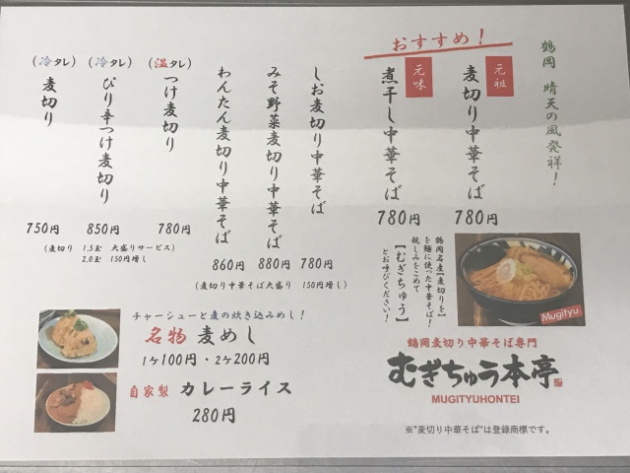 鶴岡 晴天の風発祥！
おすすめ！
元祖
麦切り中華そば
780円
元味
煮干し中華そば
780円
しお麦切り中華そば
780円
みそ野菜麦切り中華そば
880円
わんたん麦切り中華そば
860円
(麦切り中華そば大盛り 150円増し)
(温タレ)
つけ麦切り
780円
(冷タレ)
ぴり辛つけ麦切り
850円
(冷タレ)
麦切り
750円
(麦切り 1.5玉 大盛りサービス)
2.0玉 150円増し
鶴岡名産【麦切りを】
を麺に使った中華そば！
親しみをこめて
【むぎちゅう】
とお呼びください！
Mugityu
チャーシューと麦の炊き込みめし！
名物 麦めし
1ヶ100円・2ヶ200円
自家製 カレーライス
280円
鶴岡麦切り中華そば専門
むぎちゅう本亭
MUGITYUHONTEI
※"麦切り中華そば"は登録商標です。